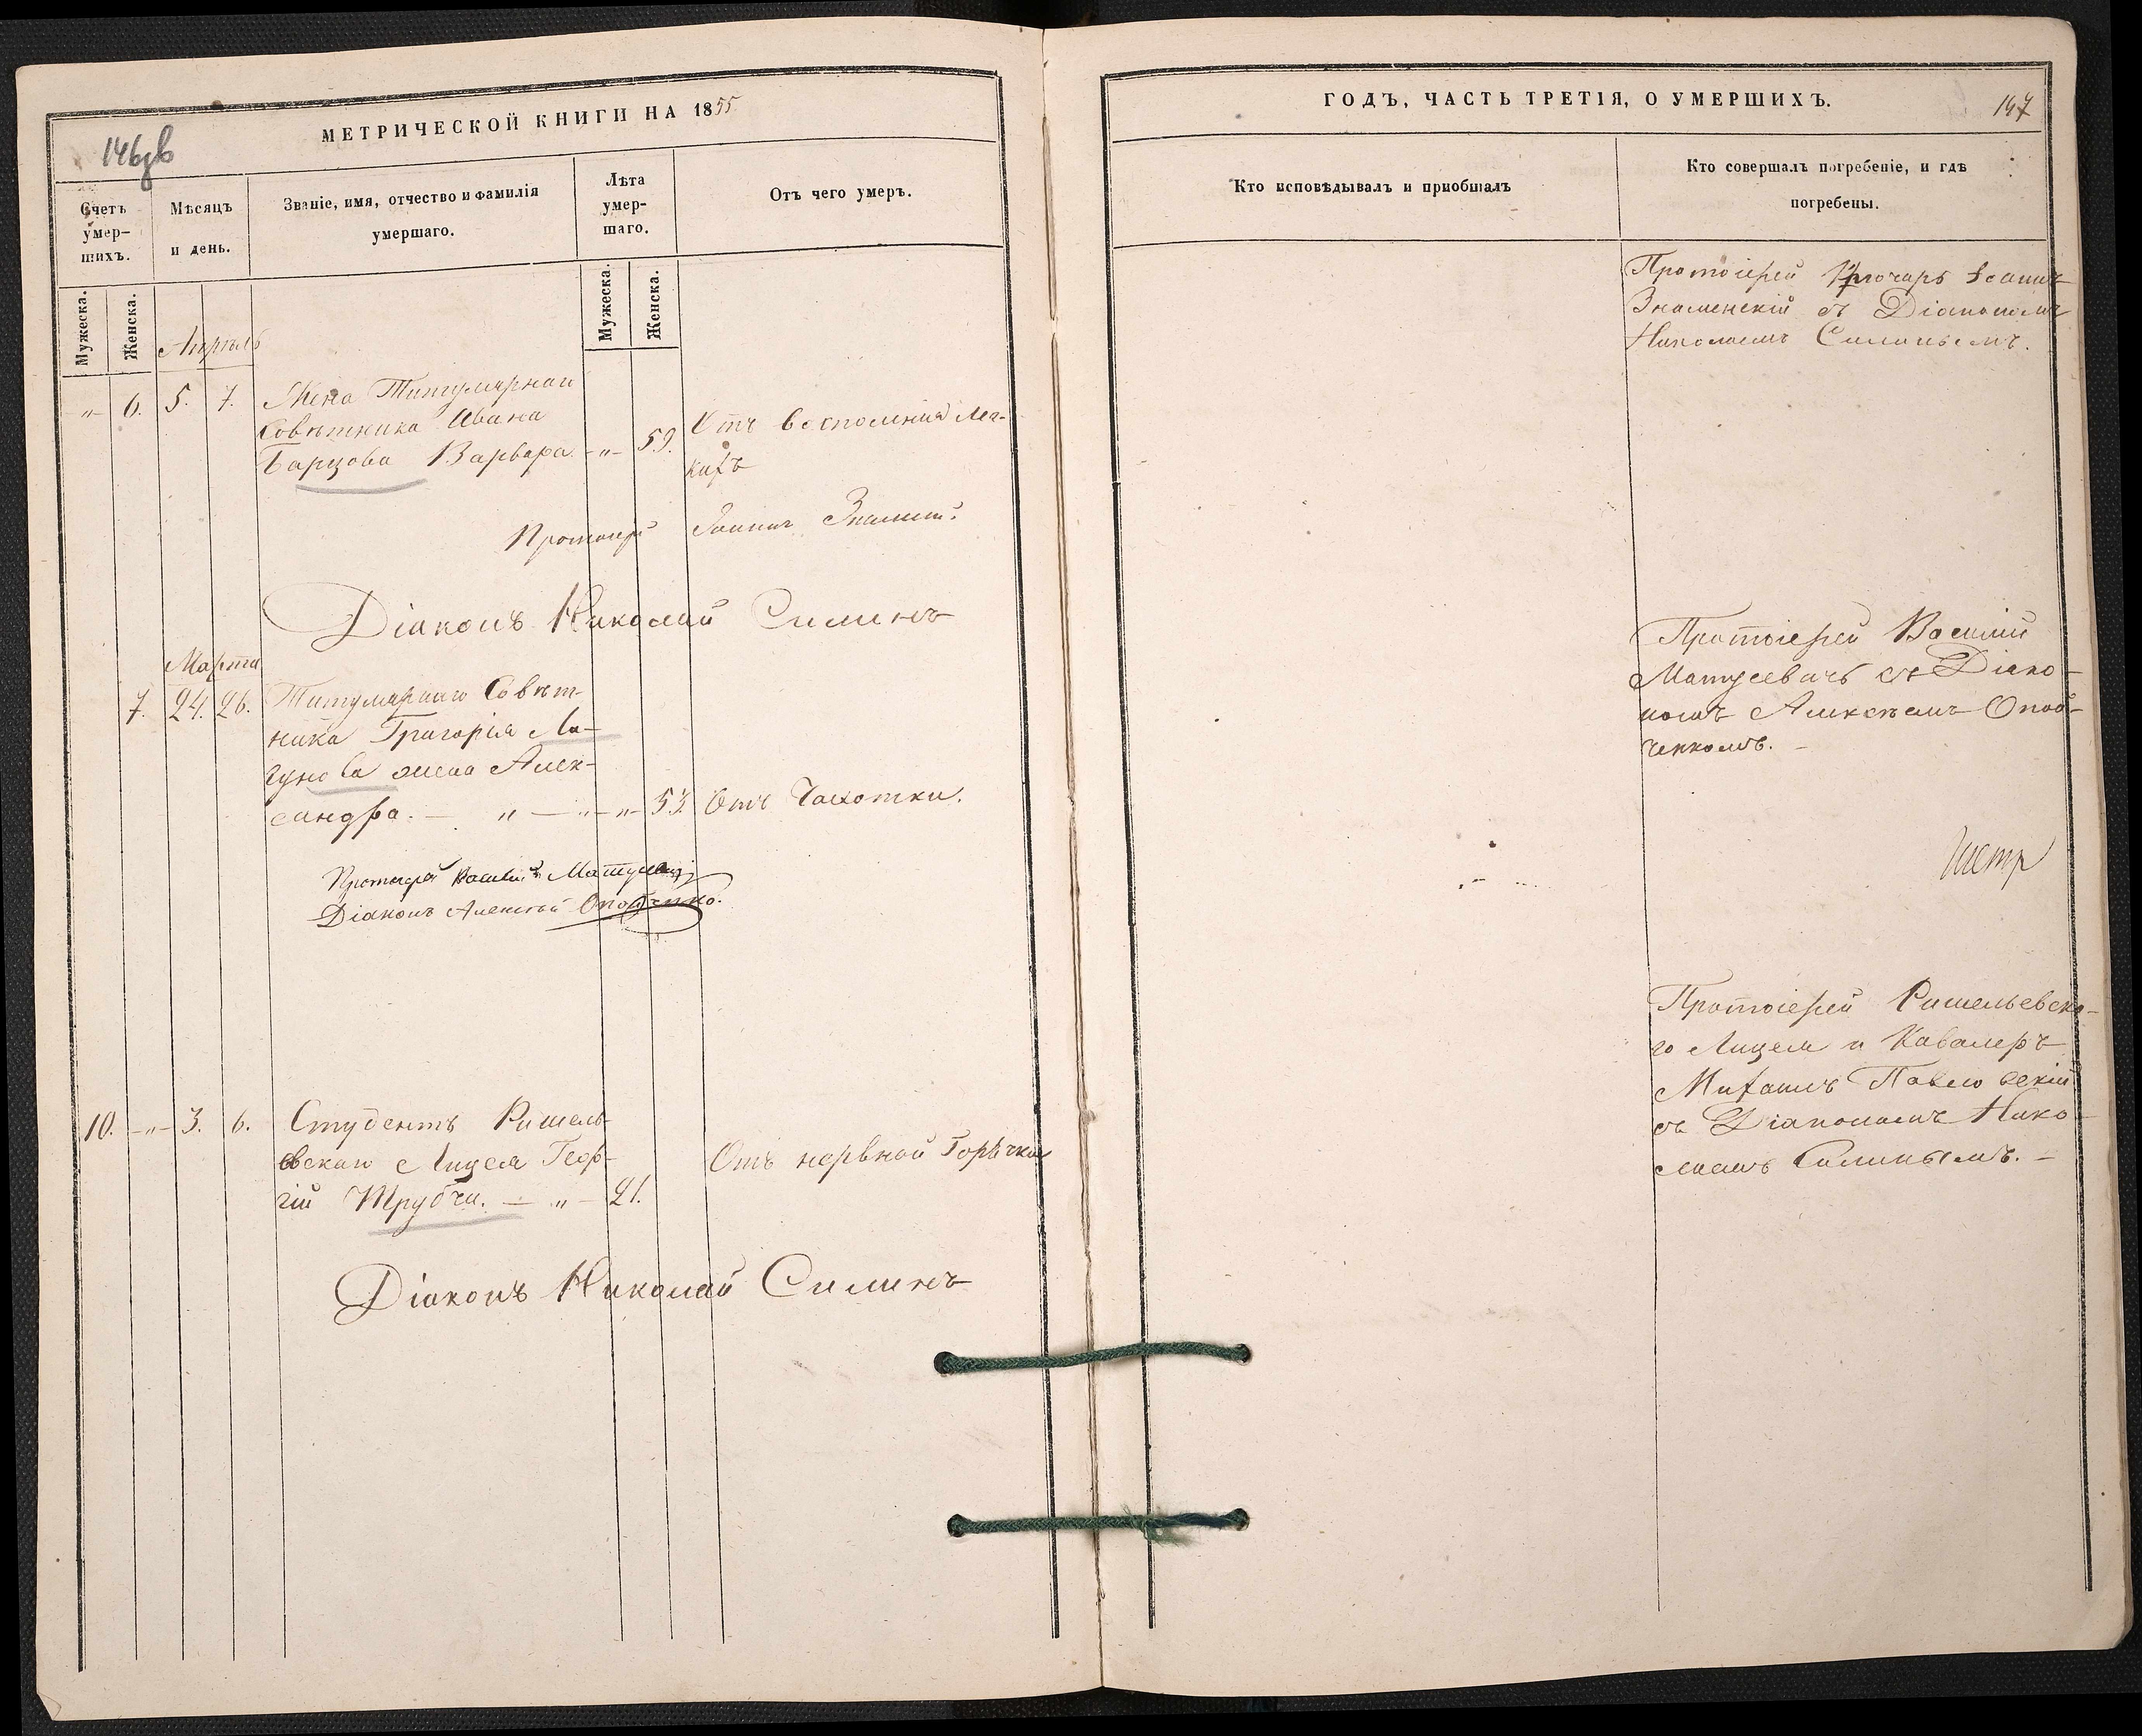 МЕТРИЧЕСКОЙ КНИГИ НА 1855
146
Счетъ умер-
шихъ.
Мѣсяцъ
и день.
Званіе, имя, отчество и фамилія
умершаго.
Лѣта
умер-
шаго.
Отъ чего умеръ.
Мужеска.
Женска.
Мужеска.
Женска.
Апрѣль
„ 6. 5. 7. Жена Титулярнаи
Совѣтника Ивана
Барцова Варвара „ 59. Отъ воспаленія лег-
кихъ
Протоіерей Іоаннъ Знамен.
Діаконъ Николай Силинъ
Марта
7. 24. 26. Титулярнаго Совѣт-
ника Григорія Ла-
гунова жена Алек-
сандра. — „ — „ — „ 53. Отъ Чахотки.
Протоіерей Василій Матусевичъ
Діаконъ Алексѣй Опобченко.
10. „ 3. 6. Студентъ Ришель-
евскаго Лицея Геор-
гій Трубчи. — „ — 21. Отъ нервной Горячки
Діаконъ Николай Силинъ
ГОДЪ, ЧАСТЬ ТРЕТІЯ, О УМЕРШИХЪ.
147
Кто исповѣдывалъ и пріобщалъ
Кто совершалъ погребеніе, и гдѣ
погребены.
Протоіерей Ключарь Іоаннъ
Знаменскій съ Діакономъ
Николаемъ Силинымъ.
Протоіерей Василій
Матусевичъ съ Діако-
номъ Алексѣемъ Опоб-
ченкомъ. —
Протоіерей Ришельевска-
го Лицея и Кавалеръ
Михаилъ Павловскій
съ Діакономъ Нико-
лаемъ Силинымъ. —